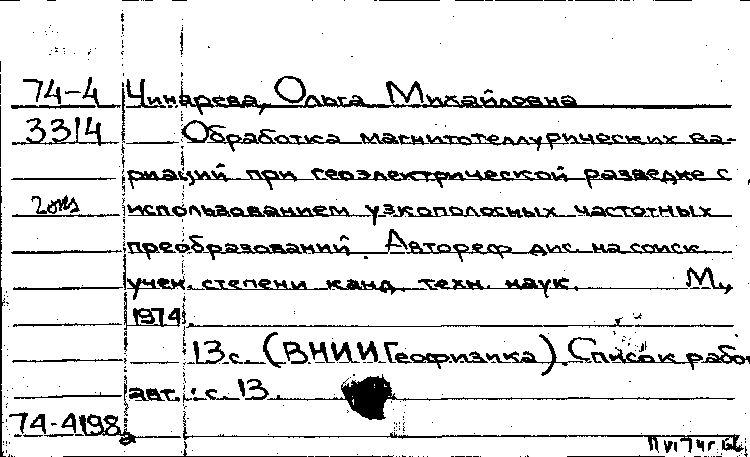 74-4 Чинарева, Ольга Михайловна
3314 Обработка магнитотеллурических ва-
риаций при геоэлектрической разведке с
2 экз использованием узкополосных частотных
преобразований. Автореф. дис. на соиск.
учен. степени канд. техн. наук. М.,
1974.
13 с. (ВНИИГеофизика). Список рабо
авт.: с. 13.
74-4198